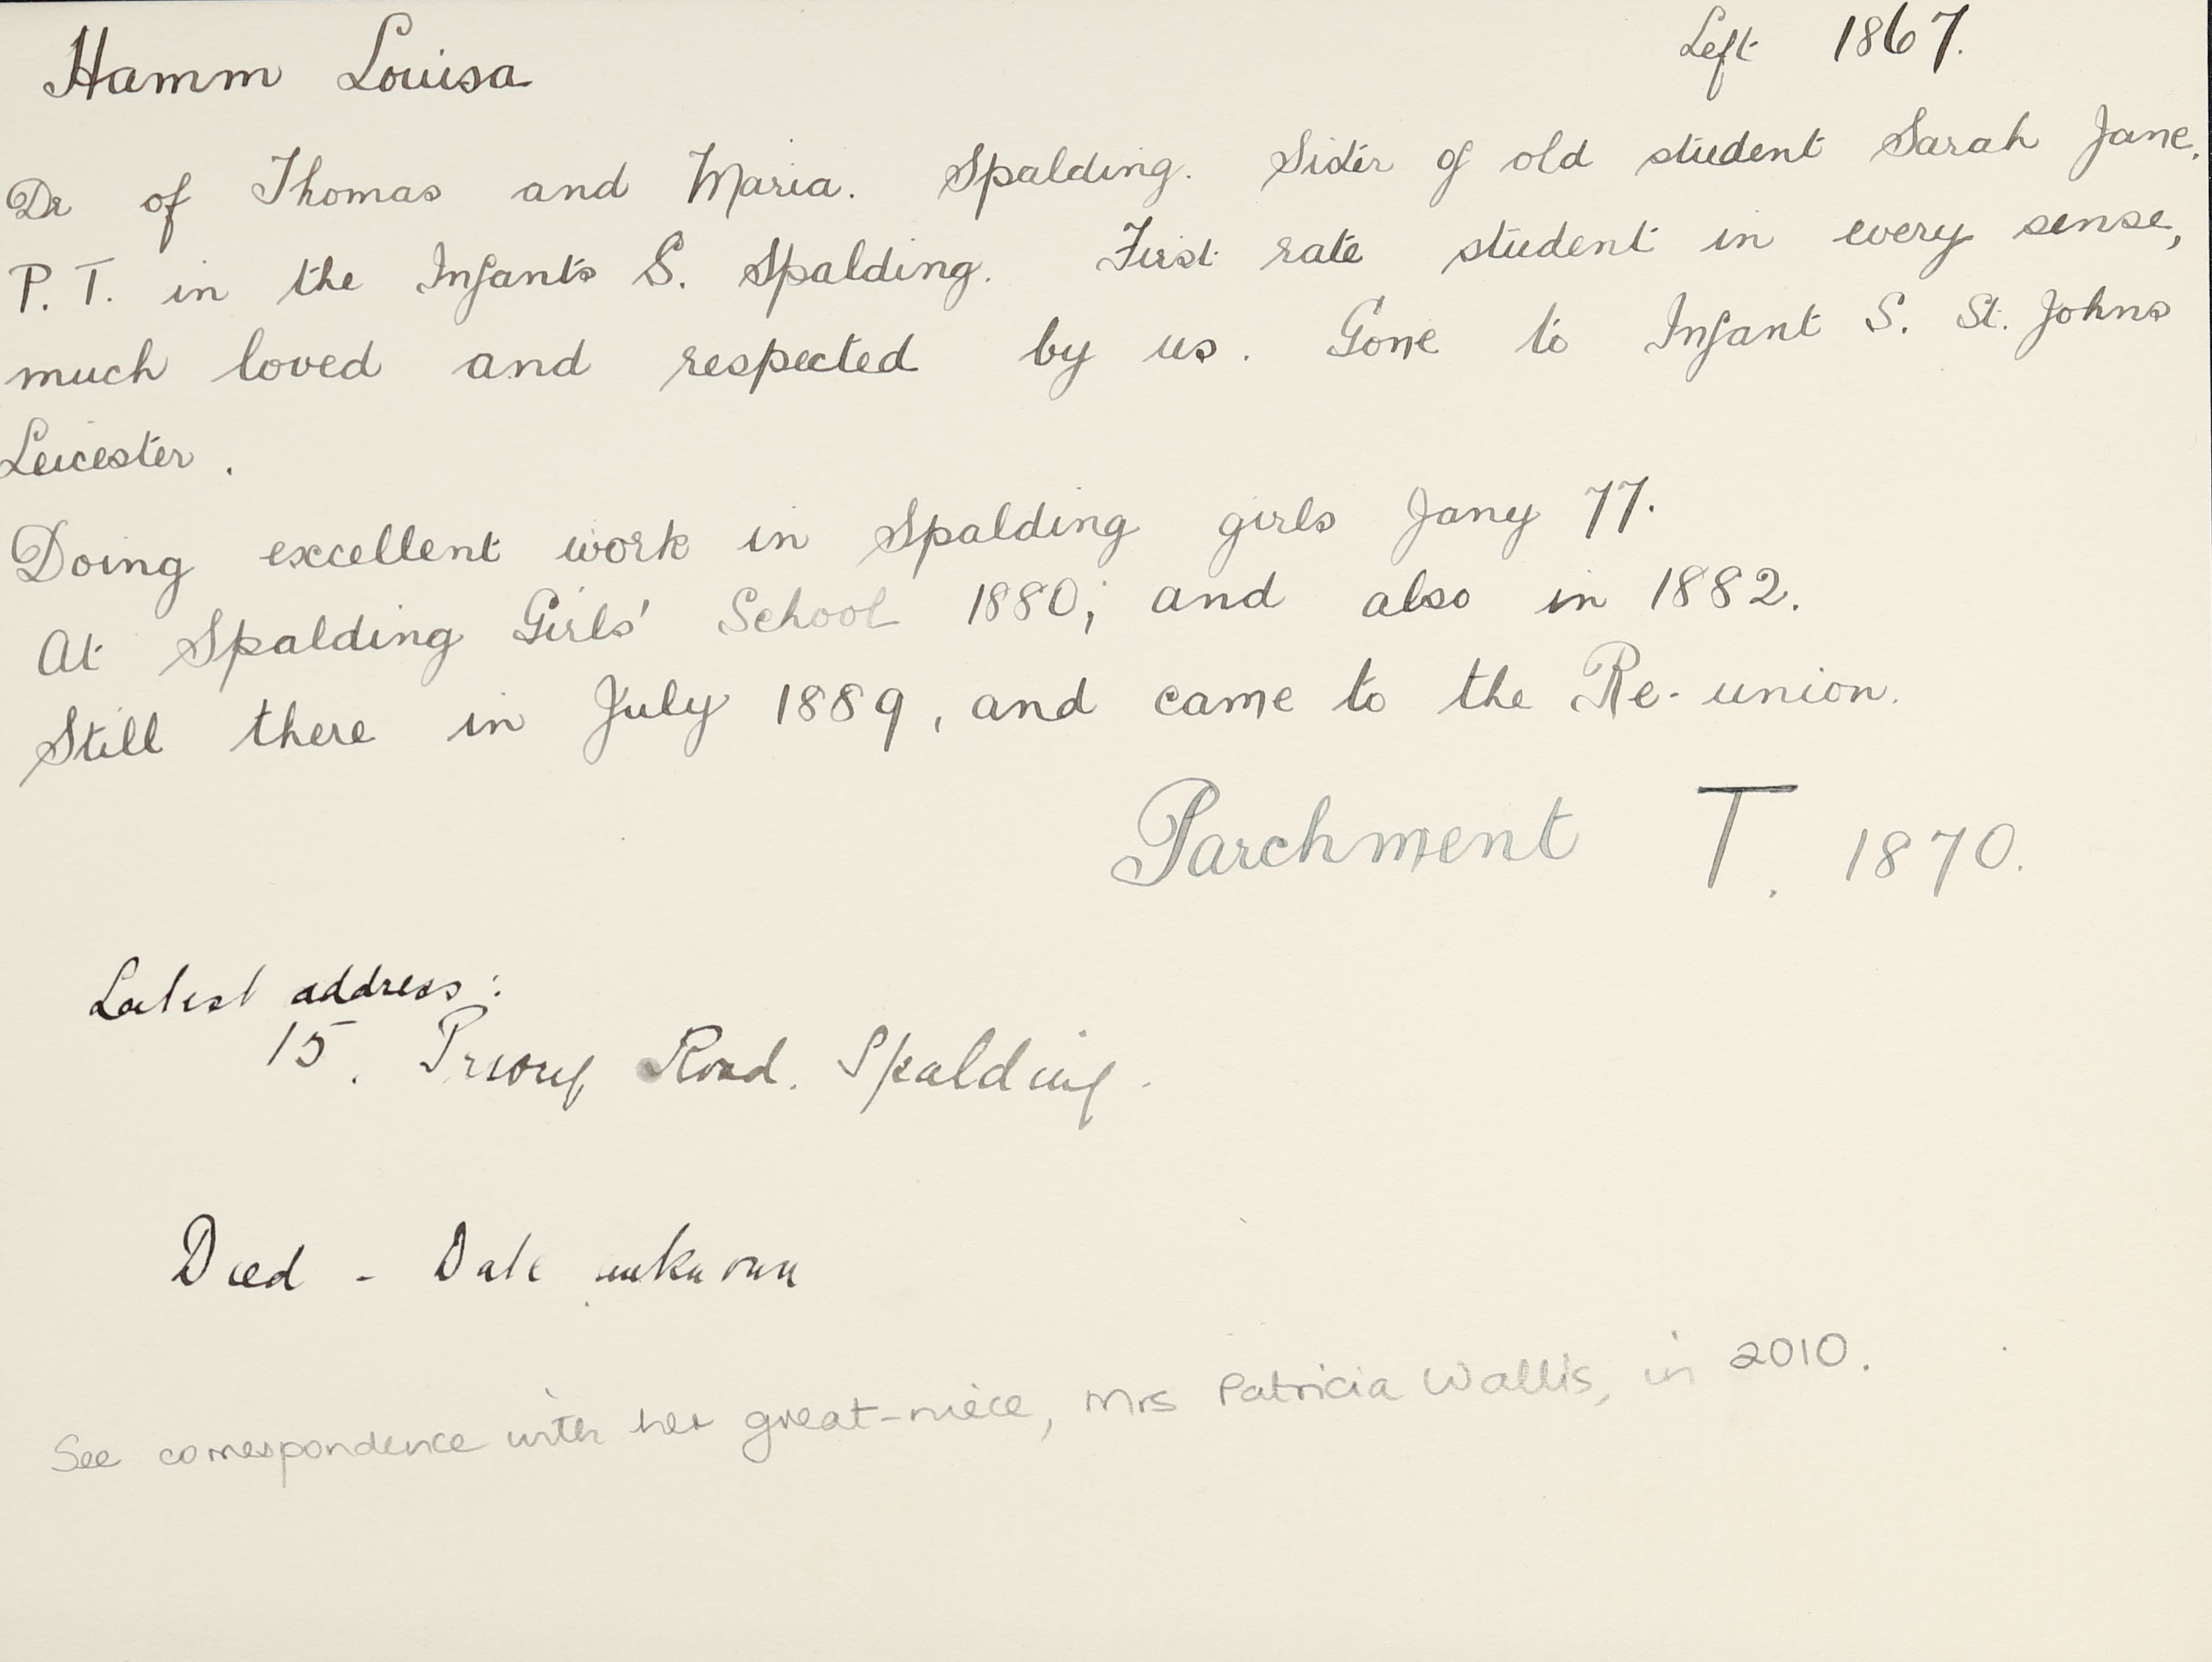 Hamm Louisa Left 1867.
Dr of Thomas and Maria. Spalding. Sister of old student Sarah Jane.
P. T. in the Infants S. Spalding. First rate student in every sense,
much loved and respected by us. Gone to Infant S. St. Johns
Leicester.
Doing excellent work in Spalding girls Jany 77.
At Spalding Girls' School 1880; and also in 1882.
Still there in July 1889, and came to the Re-union.
Parchment T. 1870.
Latest address:
15. Priory Road. Spalding.
Died - Date unknown
See correspondence with her great-niece, Mrs Patricia Wallis, in 2010.